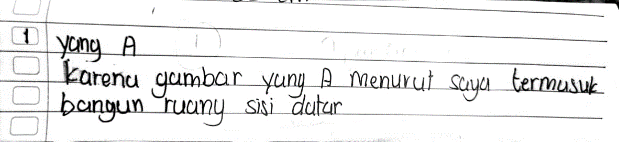 1 yang A
karena gambar yang A menurut saya termasuk
bangun ruang sisi datar